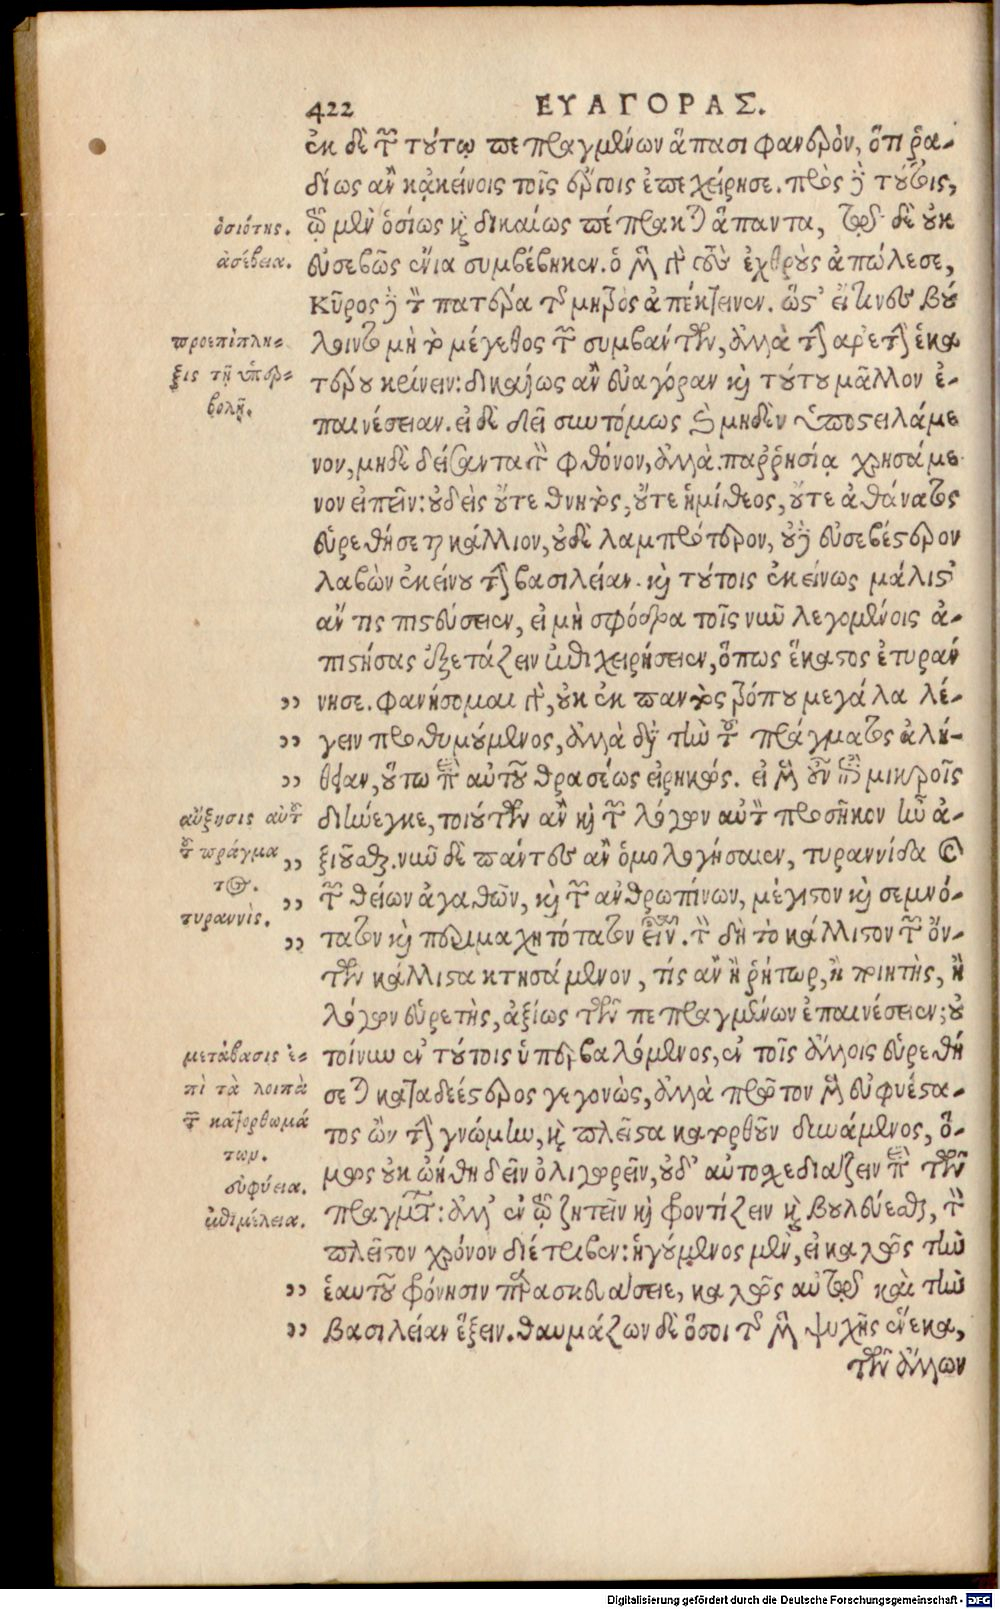 422 ΕΥΑΓΟΡΑΣ.
ἐκ δὲ τῶν τούτῳ πεπραγμένων ἅπασι φανερὸν, ὅτι ῥα-
δίως ἂν κᾀκείνοις τοῖς ἔργοις ἐπεχείρησε. πρὸς δὲ τούτοις,
τῷ μὲν ὁσίως καὶ δικαίως πέπρακται ἅπαντα, τῷ δὲ οὐκ
εὐσεβῶς ἔνια συμβέβηκεν. ὁ μὲν γὰρ τοὺς ἐχθροὺς ἀπώλεσε,
Κῦρος δὲ τὸν πατέρα τῆς μητρὸς ἀπέκτεινεν. ὥστ' εἴ τινες βού
λοιντο μὴ τὸ μέγεθος τῶν συμβάντων, ἀλλὰ τὴν ἀρετὴν ἑκα
τέρου κρίνειν: δικαίως ἂν εὐαγόραν καὶ τούτου μᾶλλον ἐ-
παινέσειαν. εἰ δὲ δεῖ συντόμως καὶ μηδὲν ὑποστειλάμε
νον, μηδὲ δείσαντα τὸν φθόνον, ἀλλὰ παῤῥησίᾳ χρησάμε
νον εἰπεῖν: οὐδεὶς οὔτε θνητὸς, οὔτε ἡμίθεος, οὔτε ἀθάνατος
εὑρεθήσεται κάλλιον, οὐδὲ λαμπρότερον, οὐδὲ εὐσεβέστερον
λαβὼν ἐκείνου τὴν βασιλείαν. καὶ τούτοις ἐκείνως μάλιστ'
ἄν τις πιστεύσειεν, εἰ μὴ σφόδρα τοῖς νῦν λεγομένοις ἀ-
πιστήσας ἐξετάζειν ἐπιχειρήσειεν, ὅπως ἕκαστος ἐτυράν
νησε. φανήσομαι γὰρ, οὐκ ἐκ παντὸς τρόπου μεγάλα λέ-
γειν προθυμούμενος, ἀλλὰ διὰ τὴν τοῦ πράγματος ἀλή-
θειαν, οὕτω περὶ αὐτοῦ θρασέως εἰρηκώς. εἰ μὲν οὖν ἐπὶ μικροῖς
διήνεγκε, τοιούτων ἂν καὶ τῶν λόγων αὐτὸν προσῆκον ἦν ἀ-
ξιοῦσθαι. νῦν δὲ πάντες ἂν ὁμολογήσαιεν, τυραννίδα καὶ
τῶν θείων ἀγαθῶν, καὶ τῶν ἀνθρωπίνων, μέγιστον καὶ σεμνό-
τατον καὶ περιμαχητότατον εἶναι. τὸν δὴ τὸ κάλλιστον τῶν ὄν-
των κάλλιστα κτησάμενον, τίς ἂν ἢ ῥήτωρ, ἢ ποιητὴς, ἢ
λόγων εὑρετὴς, ἀξίως τῶν πεπραγμένων ἐπαινέσειεν; οὐ
τοίνυν ἐν τούτοις ὑπερβαλόμενος, ἐν τοῖς ἄλλοις εὑρεθή
σεται καταδεέστερος γεγονὼς, ἀλλὰ πρῶτον μὲν εὐφυέστα-
τος ὢν τὴν γνώμην, καὶ πλεῖστα κατορθοῦν δυνάμενος, ὅ-
μως οὐκ ᾠήθη δεῖν ὀλιγωρεῖν, οὐδ' αὐτοσχεδιάζειν περὶ τῶν
πραγμάτων: ἀλλ' ἐν τῷ ζητεῖν καὶ φροντίζειν καὶ βουλεύεσθαι, τὸν
πλεῖστον χρόνον διέτριβεν: ἡγούμενος μὲν, εἰ καλῶς τὴν
ἑαυτοῦ φρόνησιν παρασκευάσειε, καλῶς αὐτῷ καὶ τὴν
βασιλείαν ἕξειν. θαυμάζων δὲ ὅσοι τῆς μὲν ψυχῆς ἕνεκα,
τῶν ἄλλων
ὁσιότης.
ἀσέβεια.
προεπίπλη-
ξις τῇ ὑπερ-
βολῇ.
αὔξησις αὐτοῦ
τοῦ πράγμα
τος.
τυραννίς.
μετάβασις ἐ-
πὶ τὰ λοιπὰ
τῶν κατορθωμά
των.
εὐφύεια.
ἐπιμέλεια.
Digitalisierung gefördert durch die Deutsche Forschungsgemeinschaft - DFG